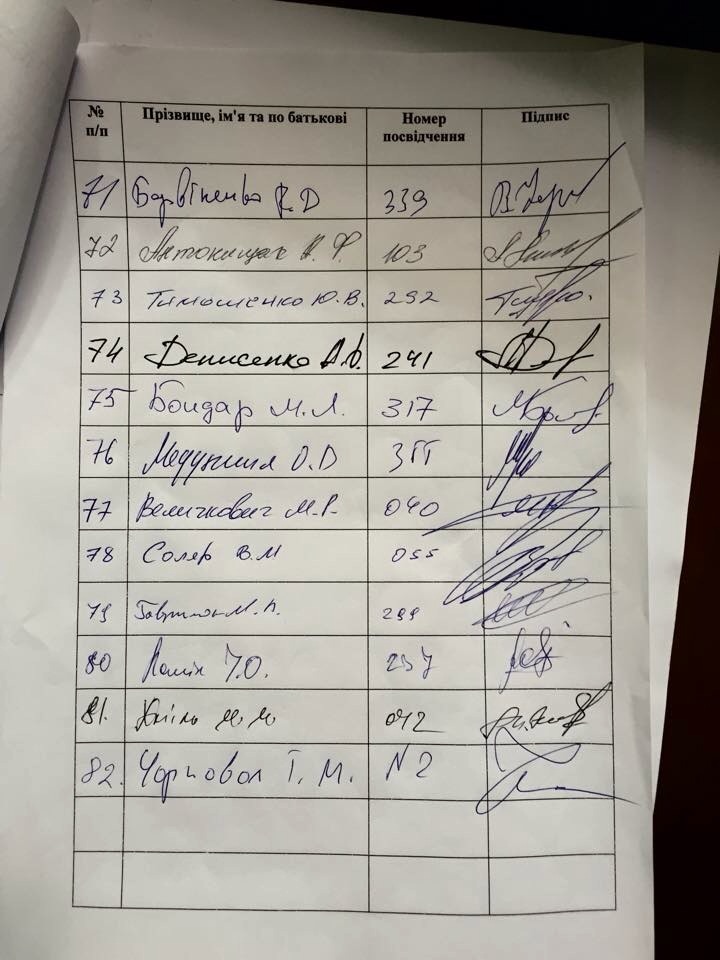 № Прізвище, ім'я та по батькові Номер Підпис
п/п посвідчення
71 Барвіненко В.Д 339
72 Антонищак А. Ф. 103
73 Тимошенко Ю.В. 292
74 Денисенко А.С. 241
75 Бондар М.Л. 317
76 О.D 355
77 Величкович М.Р. 040
78 Соляр В.М 055
79 Гаврилюк М.В. 299
80 237
81. Хміль М.М 042
82. Чорновол Т. М. N2